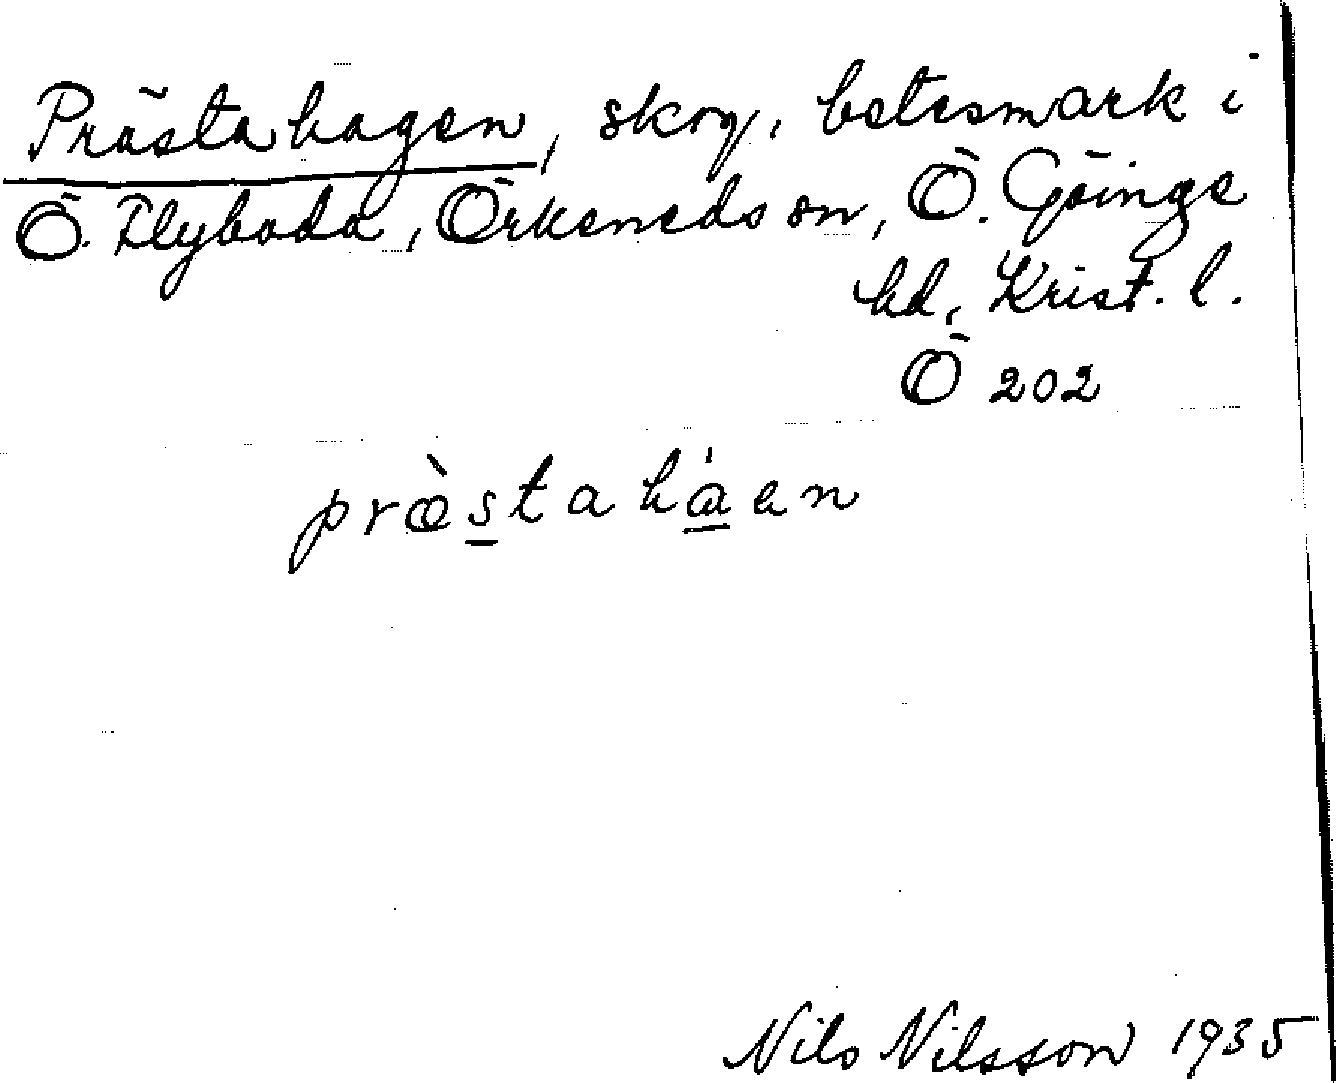 Prästahagen, skog, betesmark i
Ö. Flyboda, Örkeneds sn, Ö. Göinge
hd, Krist. l.
Ö 202
præ̀s̲taha̲̍en
Nils Nilsson 1935